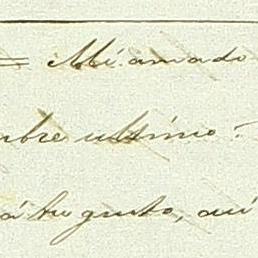 = Mi amado
mbre ultimo =
á tu gusto, así